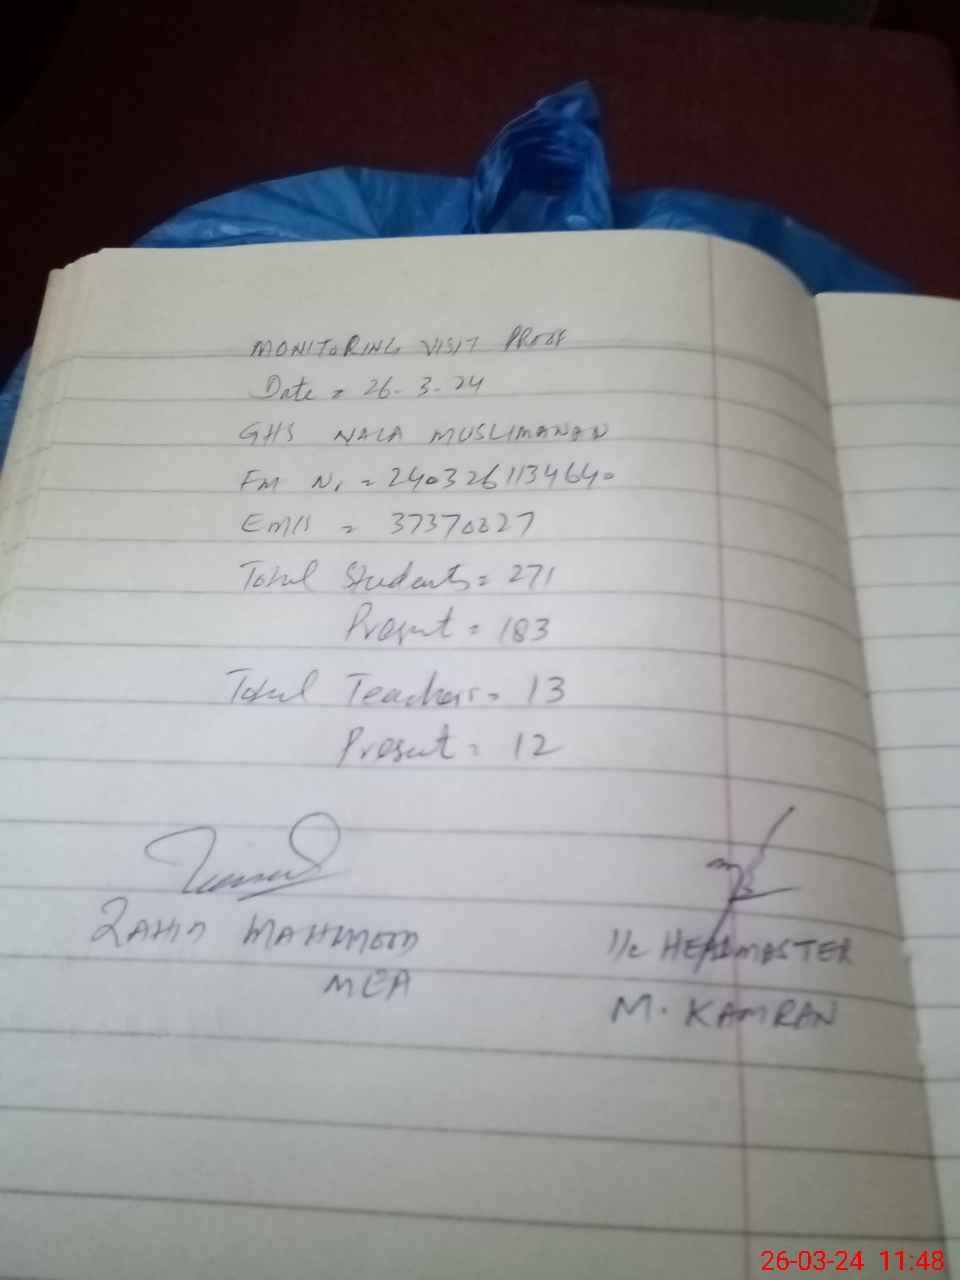 MONITORING VISIT PROOF
Date = 26-3-24
GHS NALA MUSLIMANAN
FM No = 2403261134640
EMIS = 37370227
Total Students = 271
Present = 183
Total Teachers = 13
Present = 12
ZAHID MAHMOOD
MEA
I/c HEADMASTER
M. KAMRAN
26-03-24 11:48